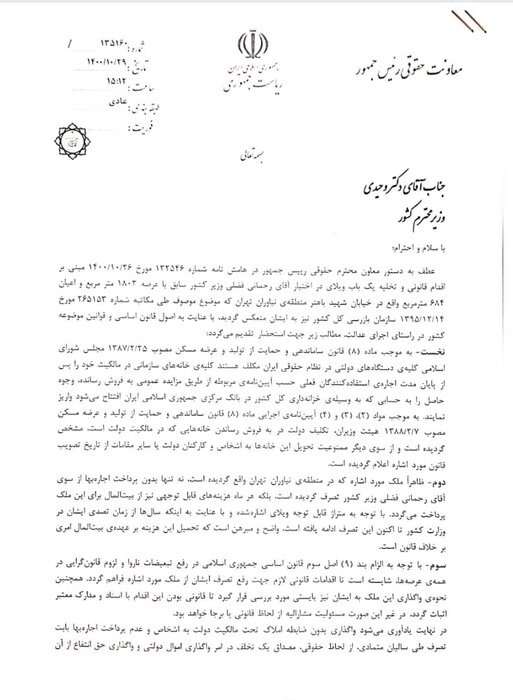 شماره : ۱۳۵۱۶۰ /
تاریخ : ۱۴۰۰/۱۰/۲۹
ساعت : ۱۵:۱۲
طبقه بندی : عادی
فوریت :
جمهوری اسلامی ایران
ریاست جمهوری
معاونت حقوقی رئیس جمهور
بسمه تعالی
جناب آقای دکتر وحیدی
وزیر محترم کشور
با سلام و احترام؛
عطف به دستور معاون محترم حقوقی رییس جمهور در هامش نامه شماره ۱۳۲۵۴۶ مورخ ۱۴۰۰/۱۰/۲۶ مبنی بر
اقدام قانونی و تخلیه یک باب ویلای در اختیار آقای رحمانی فضلی وزیر کشور سابق با عرصه ۱۸۰۳ متر مربع و اعیان
۶۸۴ مترمربع واقع در خیابان شهید باهنر منطقه‌ی نیاوران تهران که موضوع موصوف طی مکاتبه شماره ۲۶۵۱۵۳ مورخ
۱۳۹۵/۱۲/۱۴ سازمان بازرسی کل کشور نیز به ایشان منعکس گردید، با عنایت به اصول قانون اساسی و قوانین موضوعه
کشور در راستای اجرای عدالت، مطالب زیر جهت استحضار تقدیم می‌گردد:
نخست- به موجب ماده (۸) قانون ساماندهی و حمایت از تولید و عرضه مسکن مصوب ۱۳۸۷/۲/۲۵ مجلس شورای
اسلامی کلیه‌ی دستگاه‌های دولتی در نظام حقوقی ایران مکلف هستند کلیه‌ی خانه‌های سازمانی در مالکیت خود را پس
از پایان مدت اجاره‌ی استفاده‌کنندگان فعلی حسب آیین‌نامه‌ی مربوطه از طریق مزایده عمومی به فروش رسانده، وجوه
حاصل را به حسابی که به وسیله‌ی خزانه‌داری کل کشور در بانک مرکزی جمهوری اسلامی ایران افتتاح می‌شود واریز
نمایند. به موجب مواد (۲)، (۳) و (۴) آیین‌نامه‌ی اجرایی ماده (۸) قانون ساماندهی و حمایت از تولید و عرضه مسکن
مصوب ۱۳۸۸/۲/۷ هیئت وزیران، تکلیف دولت در به فروش رساندن خانه‌هایی که در مالکیت دولت است، مشخص
گردیده است و از سوی دیگر ممنوعیت تحویل این خانه‌ها به اشخاص و کارکنان دولت یا سایر مقامات از تاریخ تصویب
قانون مورد اشاره اعلام گردیده است.
دوم- ظاهراً ملک مورد اشاره که در منطقه‌ی نیاوران تهران واقع گردیده است، نه تنها بدون پرداخت اجاره‌بها از سوی
آقای رحمانی فضلی وزیر کشور تصرف گردیده است، بلکه هر ماه هزینه‌های قابل توجهی نیز از بیت‌المال برای این ملک
پرداخت می‌گردد. با توجه به متراژ قابل توجه ویلای اشاره‌شده و با عنایت به اینکه سال‌ها از زمان تصدی ایشان در
وزارت کشور تا اکنون این تصرف ادامه یافته است، واضح و مبرهن است که تحمیل این هزینه بر عهده‌ی بیت‌المال امری
بر خلاف قانون است.
سوم- با توجه به الزام بند (۹) اصل سوم قانون اساسی جمهوری اسلامی در رفع تبعیضات ناروا و لزوم قانون‌گرایی در
همه‌ی عرصه‌ها، شایسته است تا اقدامات قانونی لازم جهت رفع تصرف ایشان از ملک مورد اشاره فراهم گردد. همچنین
نحوه‌ی واگذاری این ملک به ایشان نیز بایستی مورد بررسی قرار گیرد تا قانونی بودن این اقدام با اسناد و مدارک معتبر
اثبات گردد، در غیر این صورت مسئولیت مشارالیه از لحاظ قانونی پا برجا خواهد بود.
در نهایت یادآوری می‌شود واگذاری بدون ضابطه املاک تحت مالکیت دولت به اشخاص و عدم پرداخت اجاره‌بها بابت
تصرف طی سالیان متمادی، از لحاظ حقوقی، مصداق یک تخلف در امر واگذاری اموال دولتی و واگذاری حق انتفاع از آن